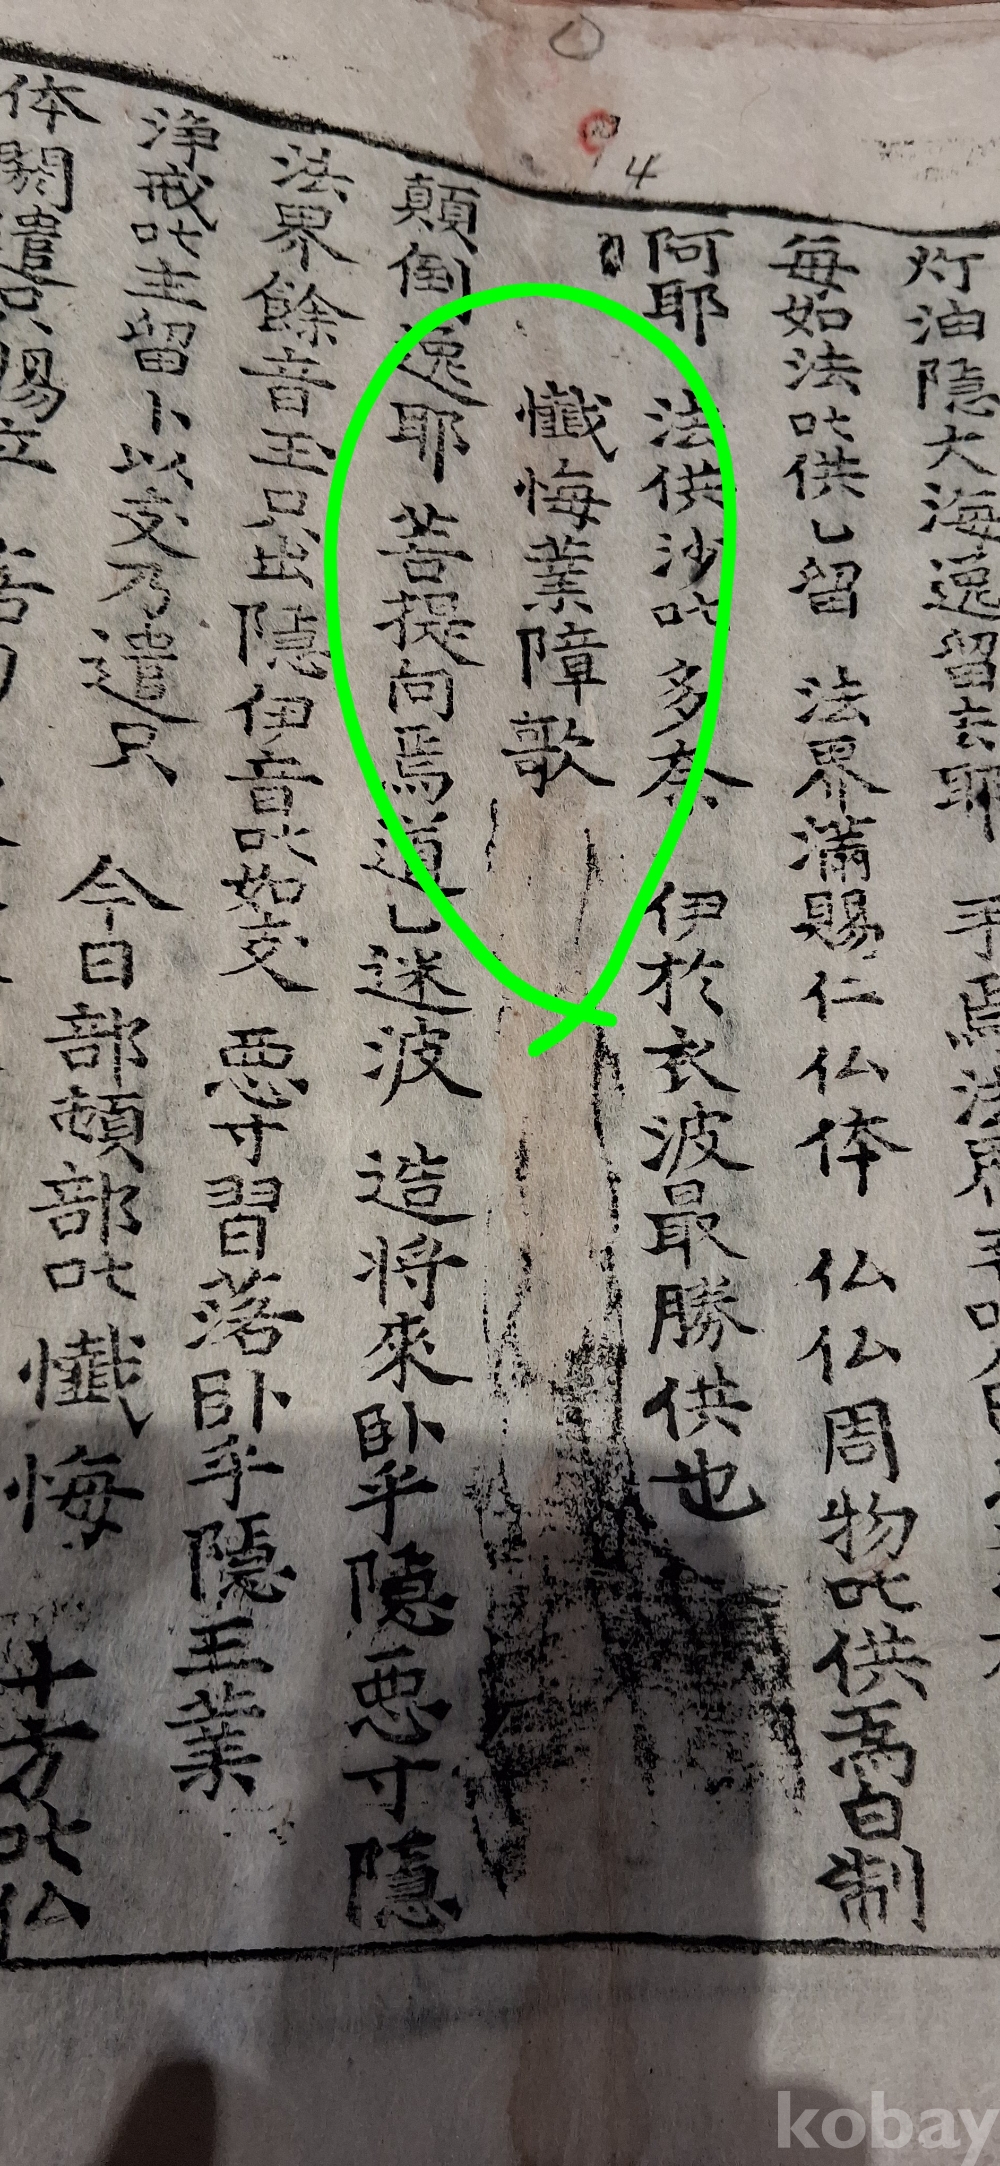 4
灯油隱大海逸留去耶 手焉法界
每如法叱供乙留 法界滿賜仁仏体 仏仏周物叱供爲白制
阿耶 法供沙叱多奈 伊於衣波最勝供也
懺悔業障歌
顚倒逸耶 菩提向焉道乙迷波 造將來臥乎隱悪寸隱
法界餘音玉只出隱伊音叱如支 悪寸習落臥乎隱王業
淨戒叱主留卜以支乃遣只 今日部頓部叱懺悔 十方叱仏
体閼遣只賜立
kobay